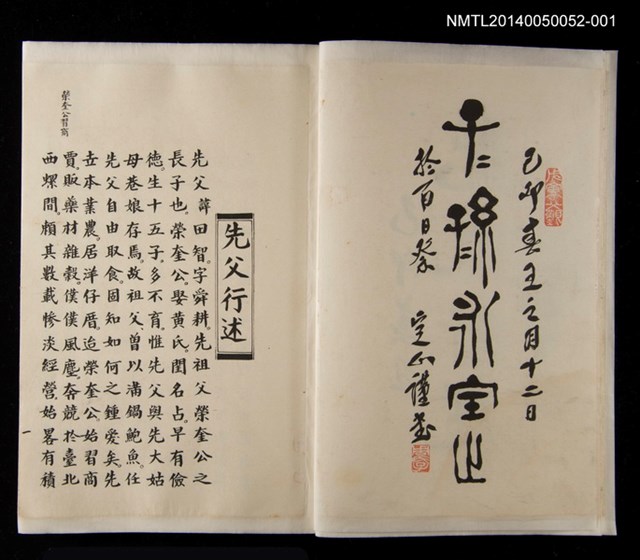 NMTL20140050052-001
己卯春王之月十二日
子孫永宝之
於百日祭
先父行述
榮奎公習商
先父諱田智。字舜耕。先祖父榮奎公之
長子也。榮奎公。娶黃氏。閨名占。早有儉
德。生十五子。多不育。惟先父與先大姑
母巷娘存焉。故祖父曾以滿鍋鮑魚。任
先父自由取食。固知如何之鍾愛矣。先
世本業農。居洋仔厝。迨榮奎公始習商
賈。販藥材雜穀。僕僕風塵。奔競於臺北
西螺間。頗其數載慘淡經營。始畧有積
一